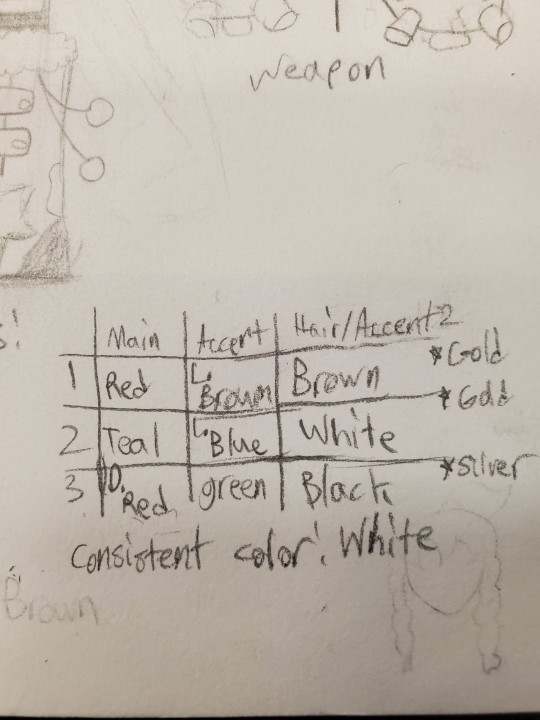 Weapon
Main Accent Hair/Accent 2
*Gold
1 Red L. Brown Brown
*Gold
2 Teal L. Blue White
*silver
3 D. Red green Black
Consistent color: White
Brown